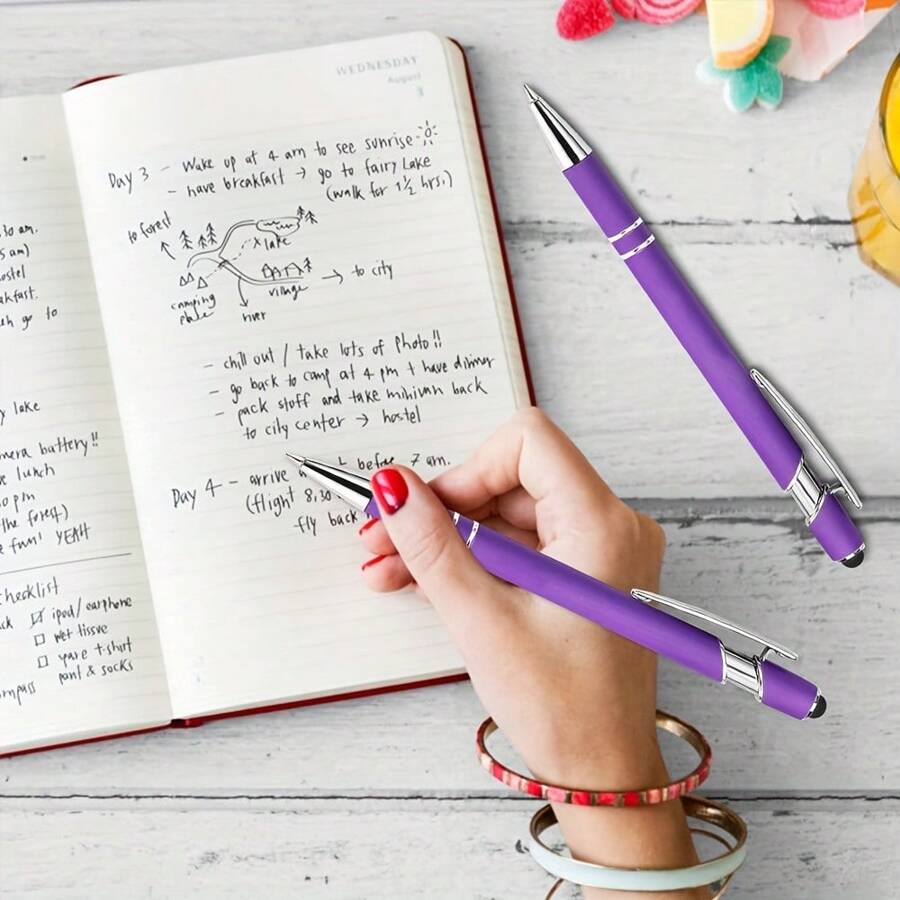 to am.
5 am)
ostel
akfast.
go to
y lake
mera battery!!
e lunch
0 pm
the forest)
e fun! YEAH
checklist
ack ☑ ipod/earphone
☐ wet tissue
☐ spare t-shirt
ompass pant & socks
WEDNESDAY
August
3
Day 3 - Wake up at 4 am to see sunrise
- have breakfast → go to fairy Lake
(walk for 1½ hrs.)
to forest
x lake
camping
place
village
→ to city
river
- chill out / take lots of photo!!
- go back to camp at 4 pm + have dinner
- pack stuff and take minivan back
to city center → hostel
Day 4 - arrive before 7 am.
(flight 8.30
fly back